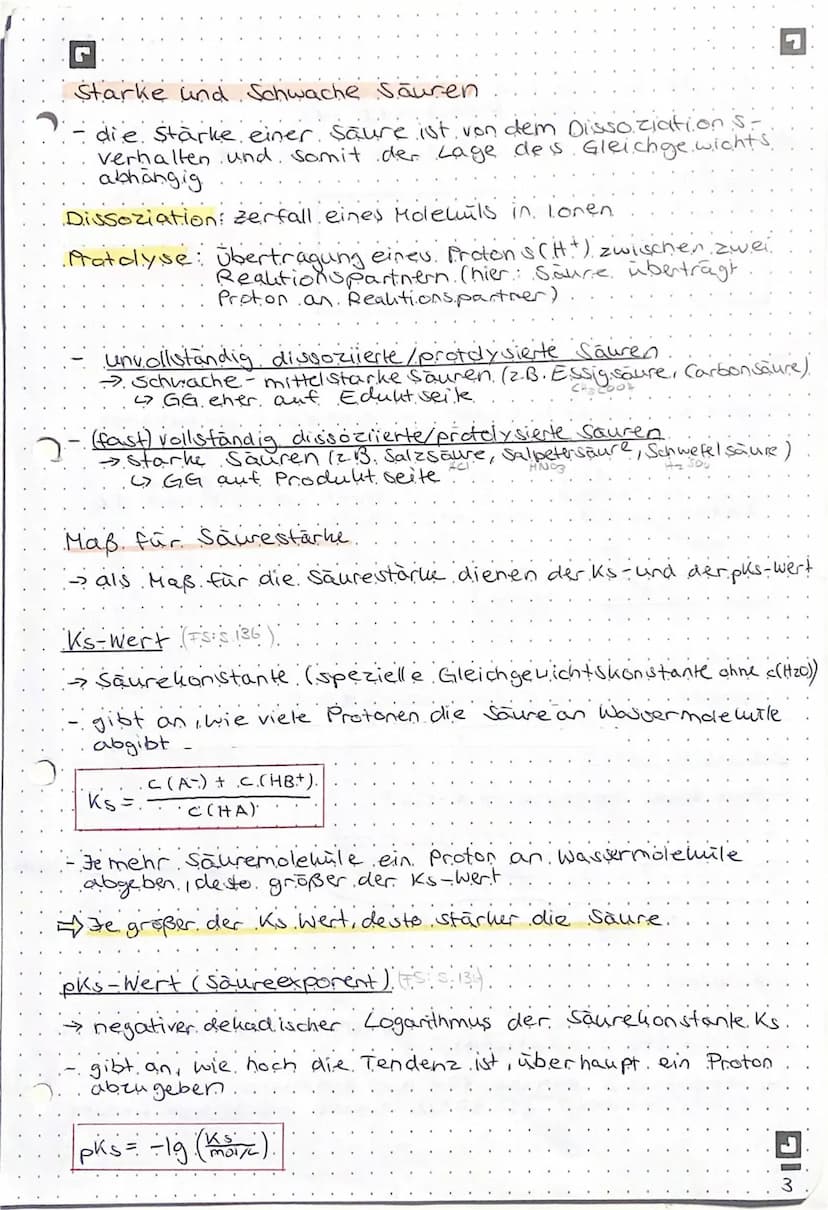 Starke und Schwache Säuren
- die Stärke einer Säure ist von dem Dissoziations-
verhalten und somit der Lage des Gleichgewichts
abhängig
Dissoziation: Zerfall eines Moleküls in Ionen
Protolyse: Übertragung eines Protons (H⁺) zwischen zwei
Reaktionspartnern (hier: Säure überträgt
Proton an Reaktionspartner)
- unvollständig dissoziierte/protolysierte Säuren
→ schwache - mittelstarke Säuren (z.B. Essigsäure, Carbonsäure)
↳ GG eher auf Eduktseite
- (fast) vollständig dissoziierte/protolysierte Säuren
→ starke Säuren (z.B. Salzsäure, Salpetersäure, Schwefelsäure)
HCl HNO₃ H₂SO₄
↳ GG auf Produktseite
Maß für Säurestärke
→ als Maß für die Säurestärke dienen der Ks- und der pKs-Wert
Ks-Wert (FS: S. 136)
→ Säurekonstante (spezielle Gleichgewichtskonstante ohne c(H2O))
- gibt an, wie viele Protonen die Säure an Wassermoleküle
abgibt
Ks = c(A-) + c(HB+) / c(HA)
- Je mehr Säuremoleküle ein Proton an Wassermoleküle
abgeben, desto größer der Ks-Wert
⇒ Je größer der Ks Wert, desto stärker die Säure
pKs-Wert (Säureexponent) (FS: S. 136)
→ negativer dekadischer Logarithmus der Säurekonstante Ks
- gibt an, wie hoch die Tendenz ist, überhaupt ein Proton
abzugeben
pKs = -lg (Ks / mol/L)
3